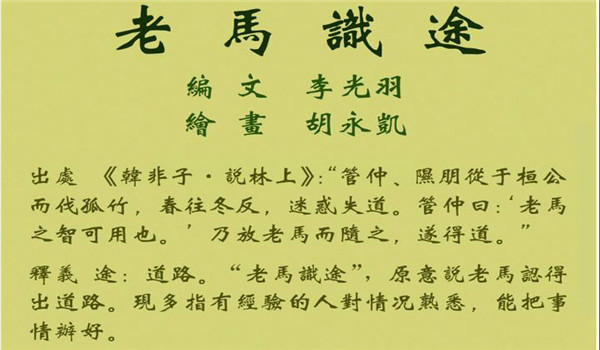 老馬識途
編文 李光羽
繪畫 胡永凱
出處 《韓非子·説林上》:“管仲、隰朋從于桓公
而伐孤竹，春往冬反，迷惑失道。管仲曰:‘老馬
之智可用也。’乃放老馬而隨之，遂得道。”
釋義 途: 道路。“老馬識途”，原意説老馬認得
出道路。現多指有經驗的人對情况熟悉，能把事
情辦好。